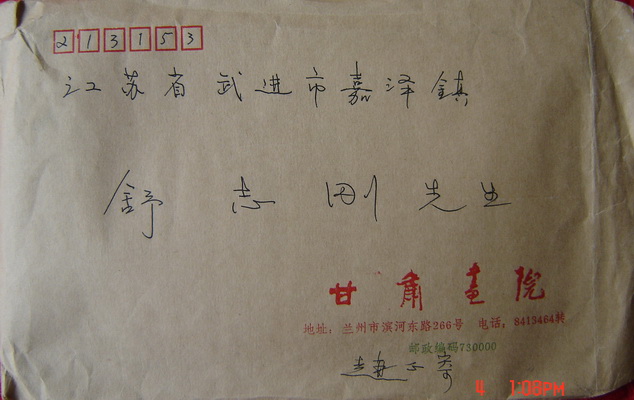 213153
江苏省武进市嘉泽鎮
舒志刚先生
甘肃画院
地址：兰州市滨河东路266号 电话：8413464转
邮政编码730000
寄
4 1:08PM